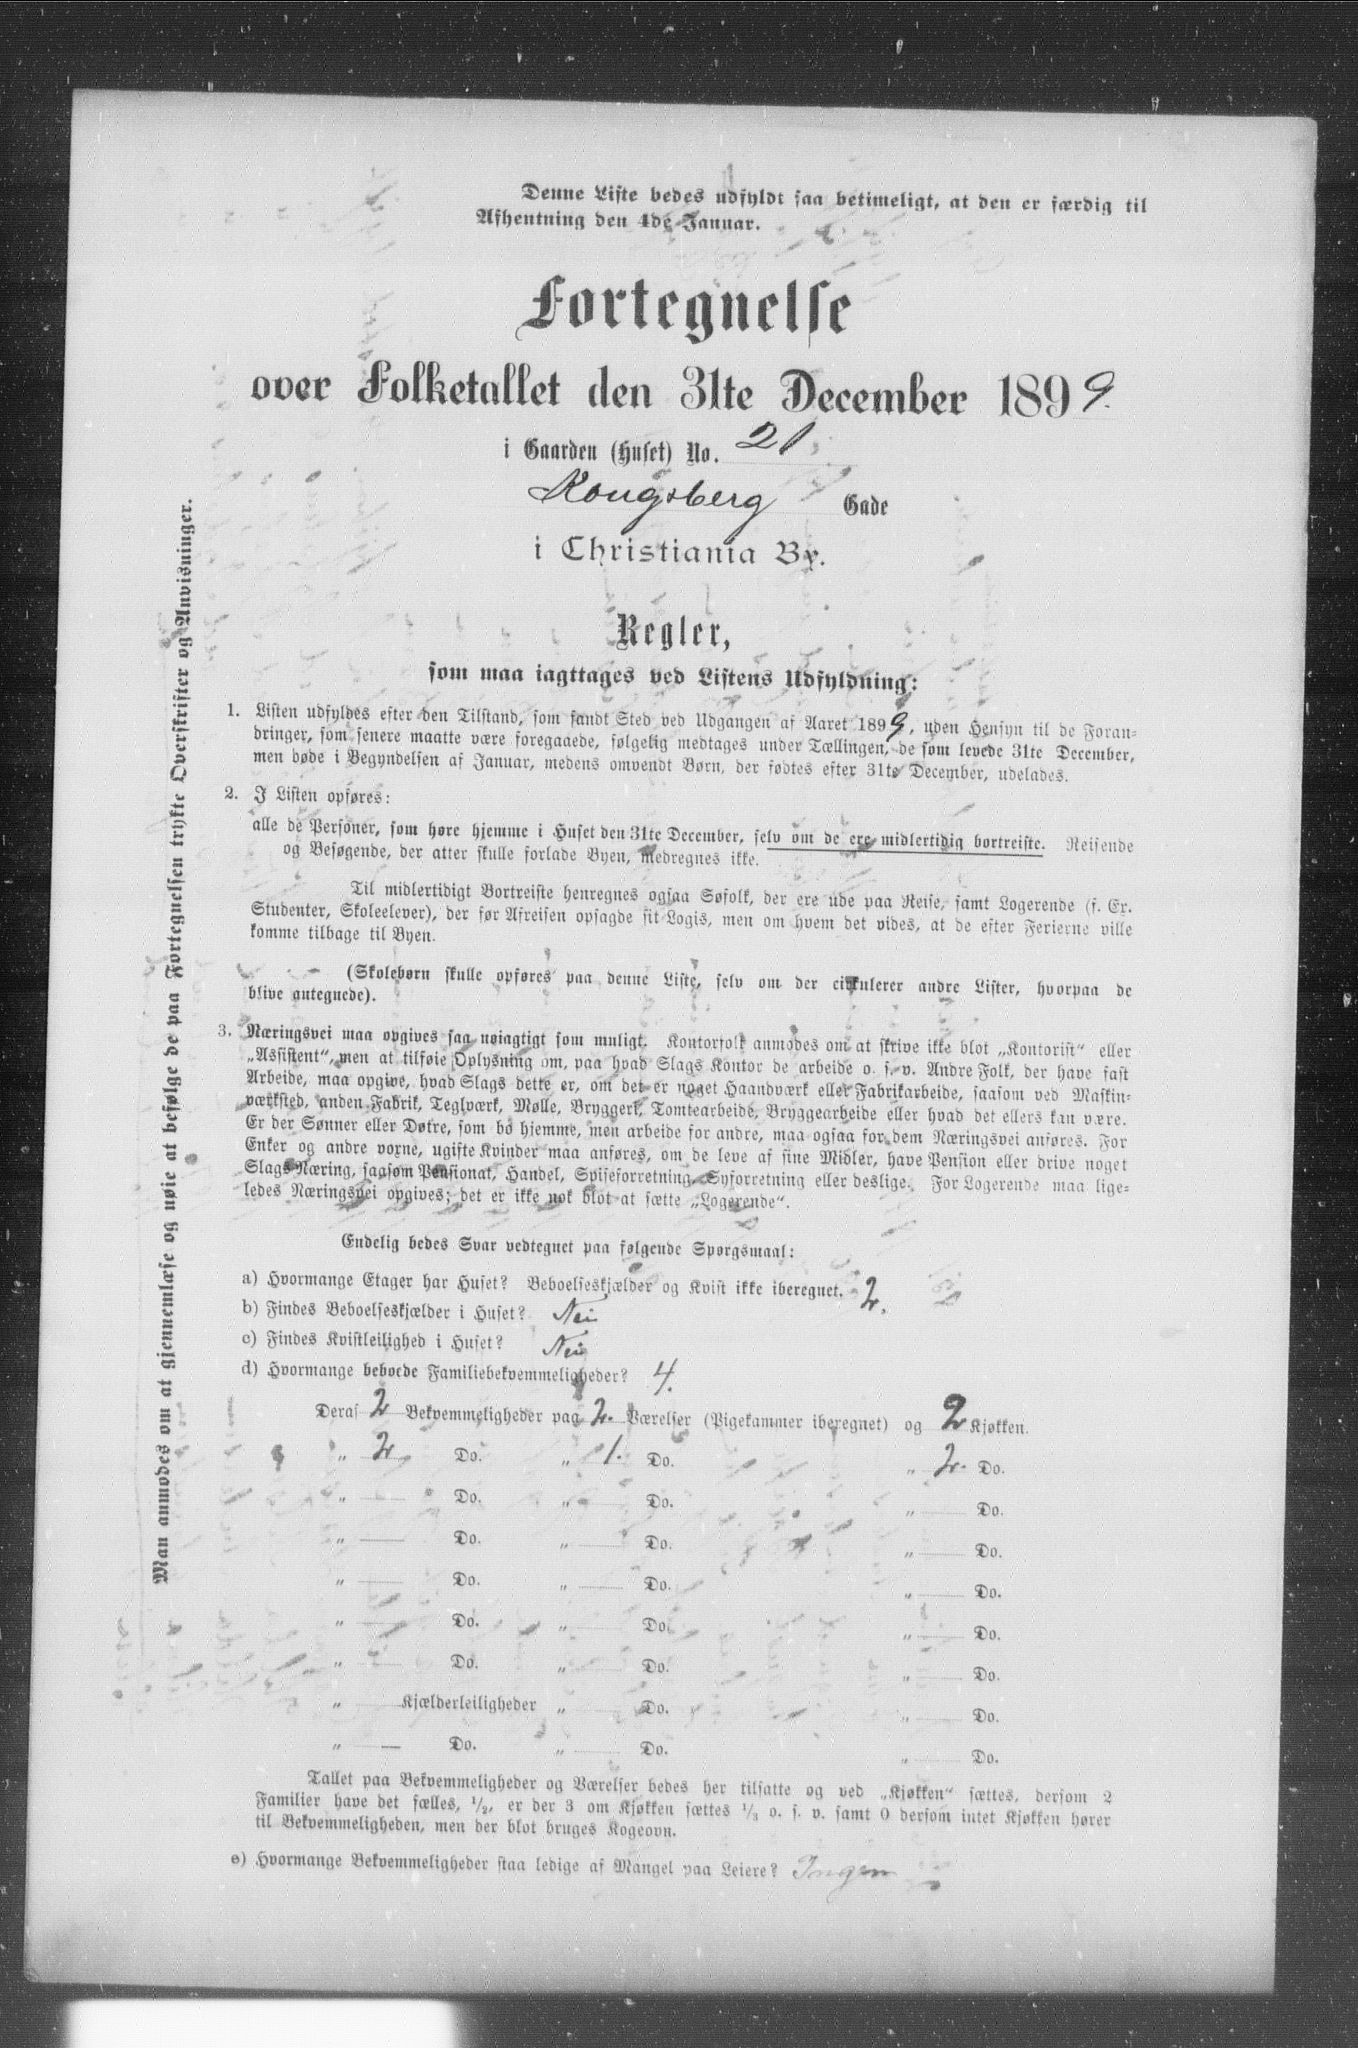 Denne Liste bedes udfyldt saa betimeligt, at den er færdig til
Afhentning den 4de Januar.
Fortegnelse
over Folketallet den 31te December 1899.
i Gaarden (Huset) No. 21
Kongsberg Gade
i Christiania By.
Regler,
som maa iagttages ved Listens Udfyldning:
1. Listen udfyldes efter den Tilstand, som fandt Sted ved Udgangen af Aaret 1899, uden Hensyn til de Foran-
dringer, som senere maatte være foregaaede, følgelig medtages under Tællingen, de som levede 31te December,
men døde i Begyndelsen af Januar, medens omvendt Børn, der fødtes efter 31te December, udelades.
2. I Listen opføres:
alle de Personer, som høre hjemme i Huset den 31te December, selv om de ere midlertidig bortreiste. Reisende
og Besøgende, der atter skulle forlade Byen, medregnes ikke.
Til midlertidigt Bortreiste henregnes ogsaa Søfolk, der ere ude paa Reise, samt Logerende (f. Ex.
Studenter, Skoleelever), der før Afreisen opsagde sit Logis, men om hvem det vides, at de efter Ferierne ville
komme tilbage til Byen.
(Skolebørn skulle opføres paa denne Liste, selv om der cirkulerer andre Lister, hvorpaa de
blive antegnede).
3. Næringsvei maa opgives saa nøiagtigt som muligt. Kontorfolk anmodes om at skrive ikke blot „Kontorist“ eller
„Assistent“, men at tilføie Oplysning om, paa hvad Slags Kontor de arbeide o. s. v. Andre Folk, der have fast
Arbeide, maa opgive, hvad Slags dette er, om det er noget Haandværk eller Fabrikarbeide, saasom ved Maskin-
værksted, anden Fabrik, Teglværk, Mølle, Bryggeri, Tomtearbeide, Bryggearbeide eller hvad det ellers kan være.
Er der Sønner eller Døtre, som bo hjemme, men arbeide for andre, maa ogsaa for dem Næringsvei anføres. For
Enker og andre voxne, ugifte Kvinder maa anføres, om de leve af sine Midler, have Pension eller drive noget
Slags Næring, saasom Pensionat, Handel, Spiseforretning, Syforretning eller deslige. For Logerende maa lige-
ledes Næringsvei opgives; det er ikke nok blot at sætte „Logerende“.
Endelig bedes Svar vedtegnet paa følgende Spørgsmaal:
a) Hvormange Etager har Huset? Beboelseskjælder og Kvist ikke iberegnet. 2.
b) Findes Beboelseskjælder i Huset? Nei
c) Findes Kvistleilighed i Huset? Nei
d) Hvormange beboede Familiebekvemmeligheder? 4.
Deraf 2 Bekvemmeligheder paa 2. Værelser (Pigekammer iberegnet) og 2 Kjøkken.
„ 2 Do. „ 1. Do. „ 2. Do.
„ Do. „ Do. „ Do.
„ Do. „ Do. „ Do.
„ Do. „ Do. „ Do.
„ Do. „ Do. „ Do.
„ Do. „ Do. „ Do.
„ Kjælderleiligheder „ Do. „ Do.
„ Do. „ Do. „ Do.
Tallet paa Bekvemmeligheder og Værelser bedes her tilsatte og ved „Kjøkken“ sættes, dersom 2
Familier have det fælles, 1/2, er der 3 om Kjøkken sættes 1/3 o. s. v. samt 0 dersom intet Kjøkken hører
til Bekvemmeligheden, men der blot bruges Kogeovn.
e) Hvormange Bekvemmeligheder staa ledige af Mangel paa Leiere? Ingen
Man anmodes om at gjennemlæse og nøie at befølge de paa Fortegnelsen trykte Overskrifter og Anvisninger.